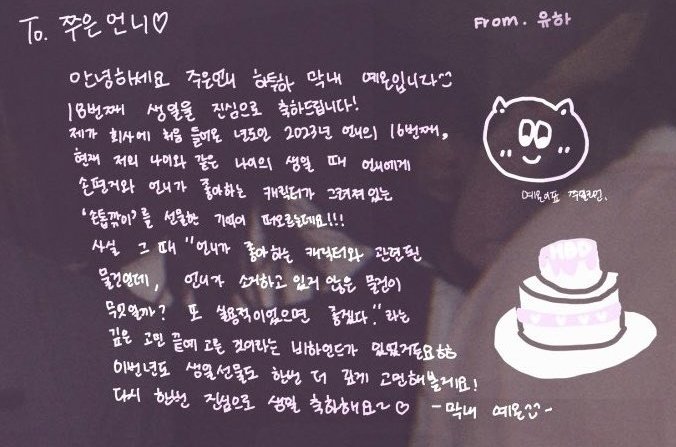 To. 쭈은언니♡
From. 유하
안녕하세요 주은언니 하투하 막내 예온입니다
18번째 생일을 진심으로 축하드립니다!
제가 회사에 처음 들어온 년도인 2023년 언니의 16번째,
현재 저의 나이와 같은 나이의 생일 때 언니에게
손편지와 언니가 좋아하는 캐릭터가 그려져있는
'손톱깎이'를 선물한 기억이 떠오르는데요!!!
사실 그 때 "언니가 좋아하는 캐릭터와 관련된
물건인데, 언니가 소지하고 있지 않은 물건이
무엇일까? 또 실용적이었으면 좋겠다."라는
깊은 고민 끝에 고른 것이라는 비하인드가 있었거든요ㅎㅎ
이번년도 생일선물도 한번 더 깊게 고민해볼게요!
다시 한번 진심으로 생일 축하해요~♡ -막내 예온^^-
예온이표
HBD